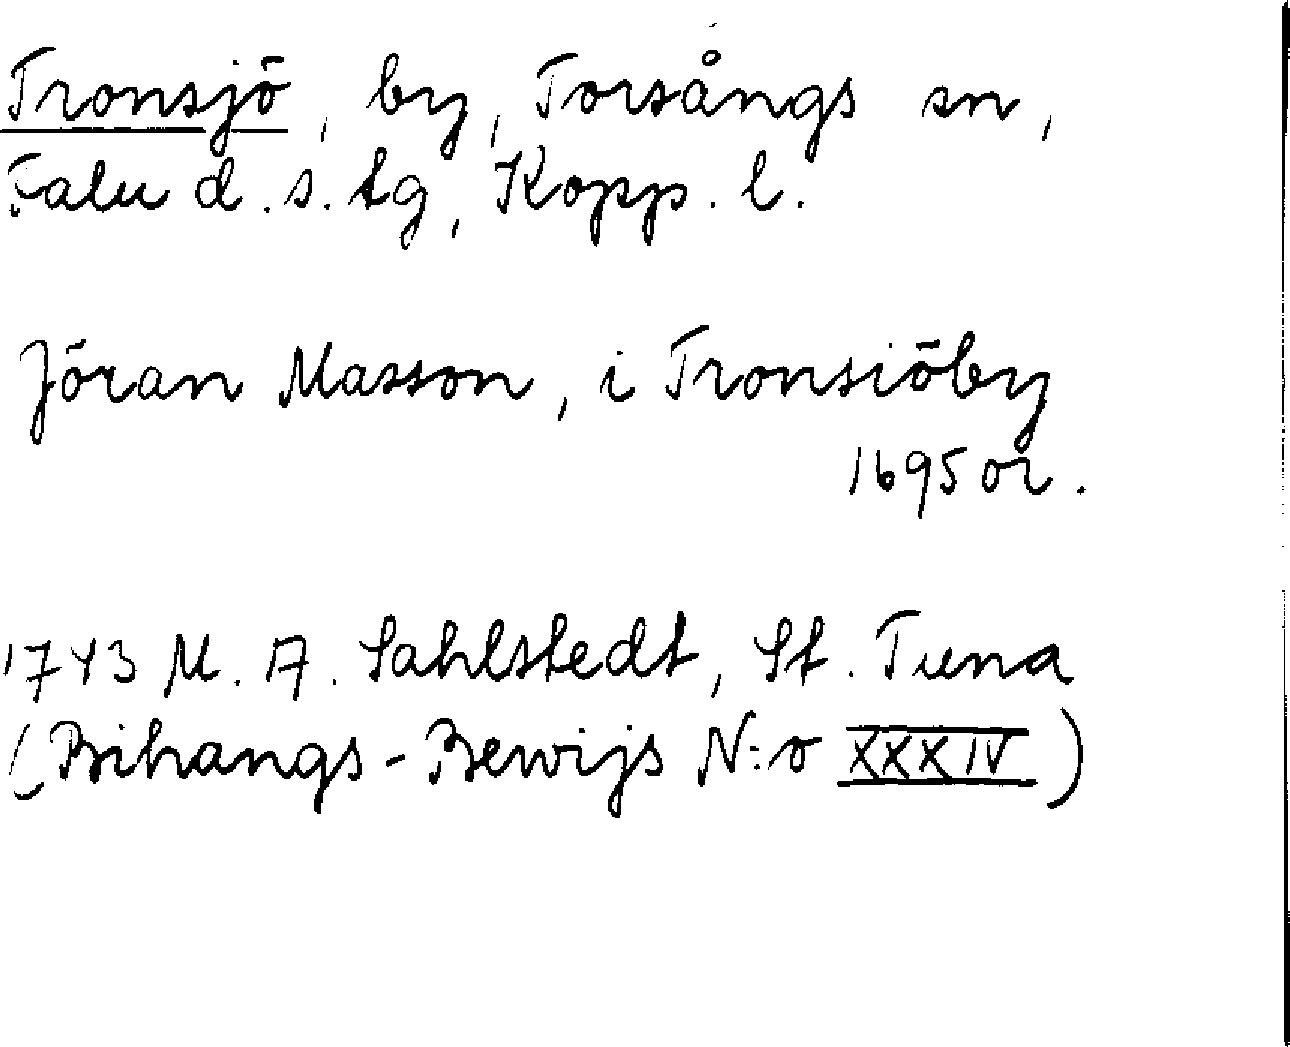 Tronsjö, by, Torsångs sn,
Falu d.s. tg, Kopp. l.
Jöran Masson, i Tronsiöby
1695 or.
1743 M. A. Sahlstedt, St. Tuna
(Bihangs-Bewijs N:o XXXIV)